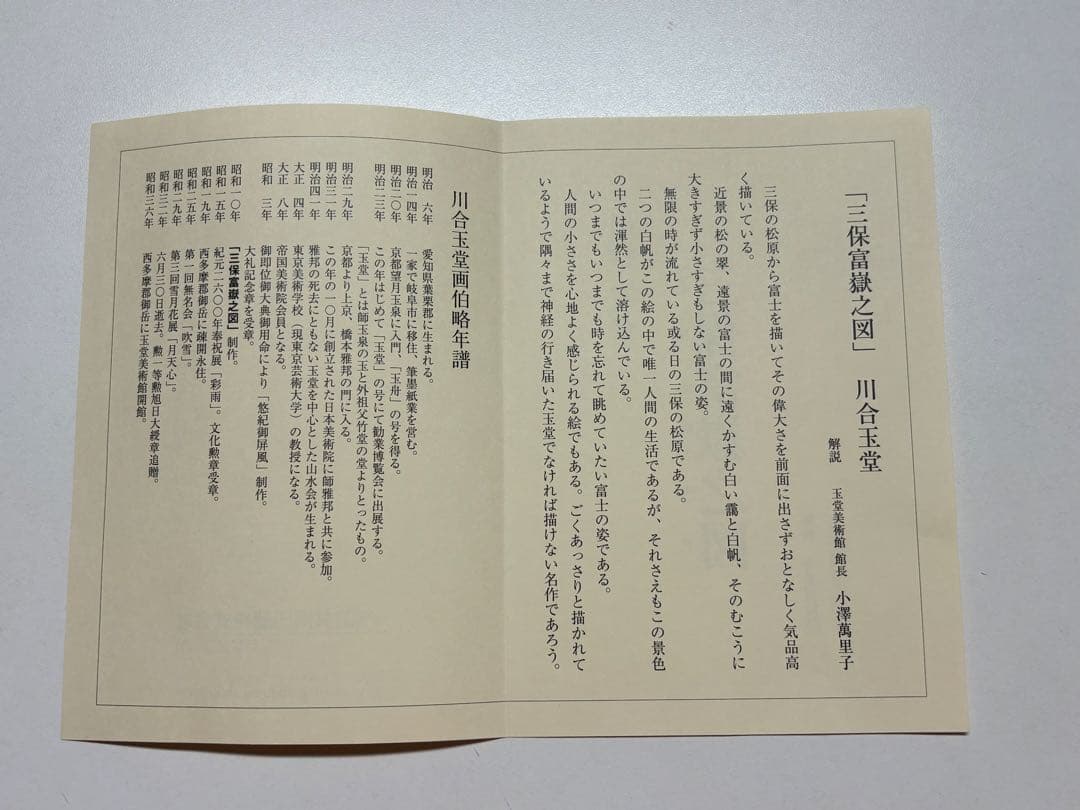 「三保富嶽之図」 川合玉堂
解説 玉堂美術館 館長 小澤萬里子
三保の松原から富士を描いてその偉大さを前面に出さずおとなしく気品高
く描いている。
近景の松の翠、遠景の富士の間に遠くかすむ白い靄と白帆、そのむこうに
大きすぎず小さすぎもしない富士の姿。
無限の時が流れている或る日の三保の松原である。
二つの白帆がこの絵の中で唯一人間の生活であるが、それさえもこの景色
の中では渾然として溶け込んでいる。
いつまでもいつまでも時を忘れて眺めていたい富士の姿である。
人間の小ささを心地よく感じられる絵でもある。ごくあっさりと描かれて
いるようで隅々まで神経の行き届いた玉堂でなければ描けない名作であろう。
川合玉堂画伯略年譜
明治 六年 愛知県葉栗郡に生まれる。
明治一四年 一家で岐阜市に移住、筆墨紙業を営む。
明治二〇年 京都望月玉泉に入門、「玉舟」の号を得る。
明治二三年 この年はじめて「玉堂」の号にて勧業博覧会に出展する。
「玉堂」とは師玉泉の玉と外祖父竹堂の堂よりとったもの。
明治二九年 京都より上京、橋本雅邦の門に入る。
明治三一年 この年の一〇月に創立された日本美術院に師雅邦と共に参加。
明治四一年 雅邦の死去にともない玉堂を中心とした山水会が生まれる。
大正 四年 東京美術学校（現東京芸術大学）の教授になる。
大正 八年 帝国美術院会員となる。
昭和 三年 御即位御大典御用命により「悠紀御屏風」制作。
大礼記念章を受章。
昭和一〇年 「三保富嶽之図」制作。
昭和一五年 紀元二六〇〇年奉祝展「彩雨」。文化勲章受章。
昭和一九年 西多摩郡御岳に疎開永住。
昭和二五年 第一回無名会「吹雪」。
昭和二九年 第三回雪月花展「月天心」。
昭和三二年 六月三〇日逝去。勲一等勲旭日大綬章追贈。
昭和三六年 西多摩郡御岳に玉堂美術館開館。